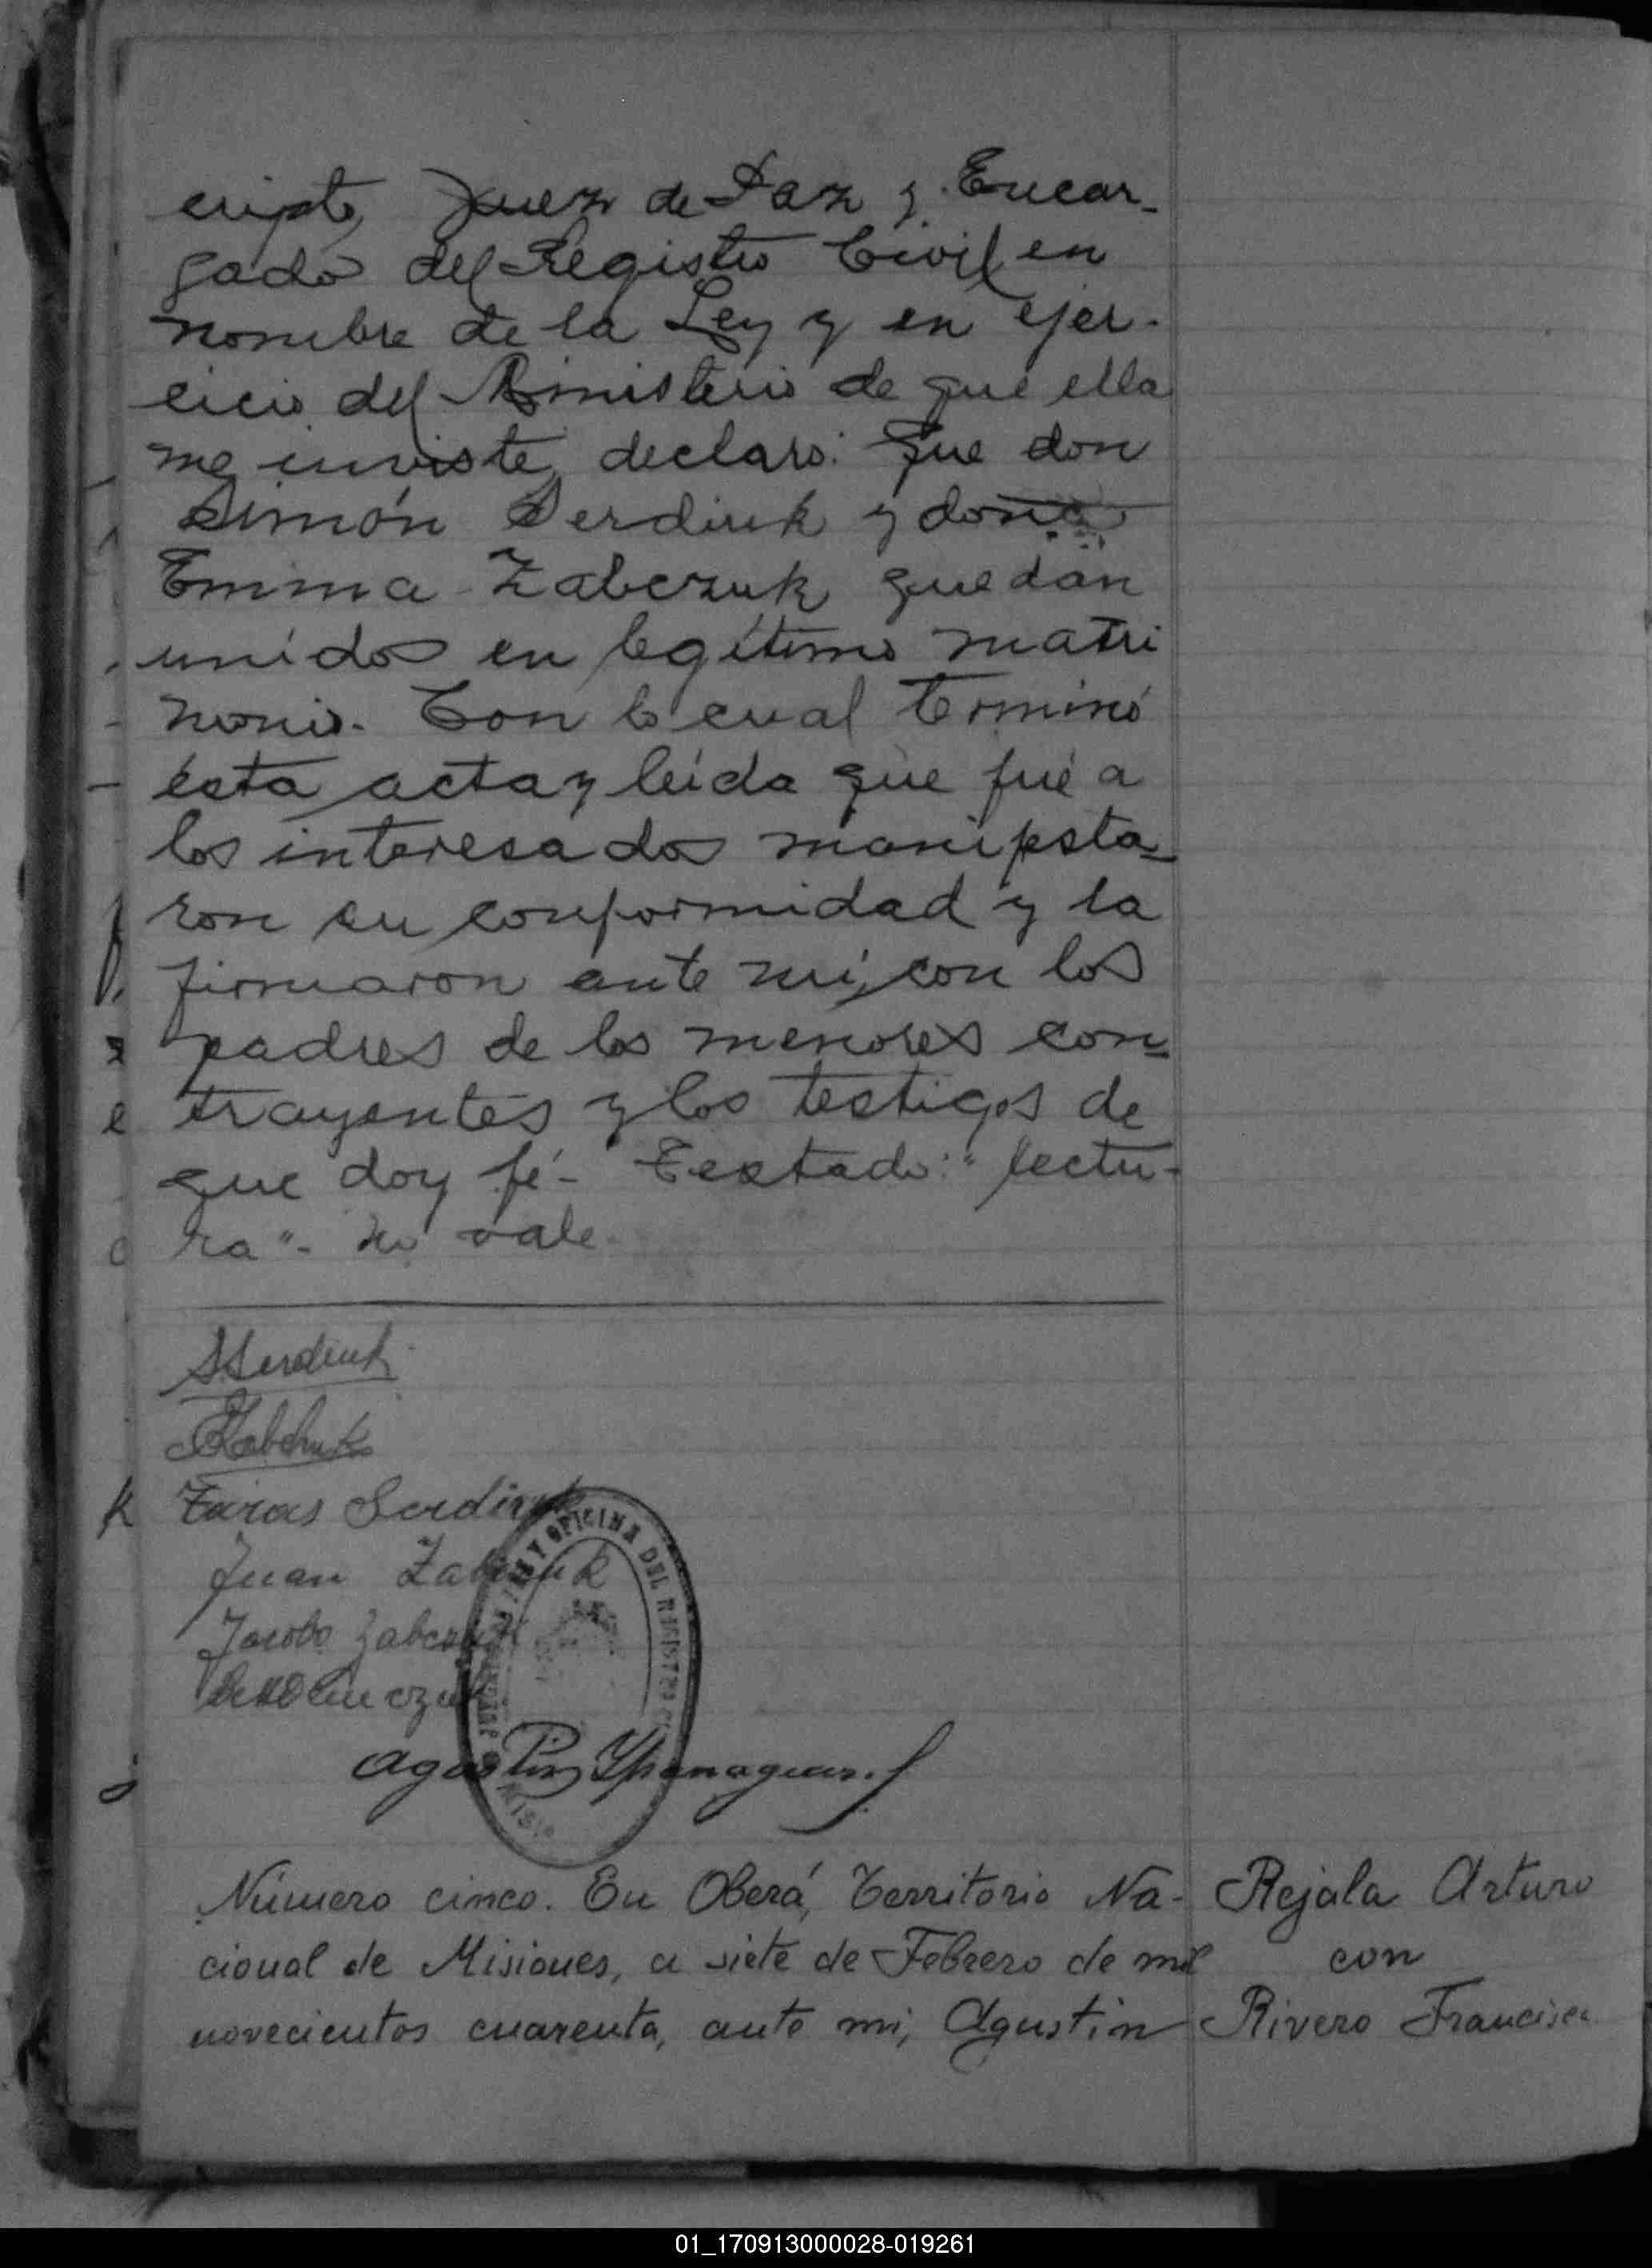 cripto, Juez de Paz y Encar-
gado del Registro Civil en
nombre de la Ley y en ejer-
cicio del Ministerio de que ella
me inviste, declaro: Que don
Simón Serdiuk y doña
Emma Zabczuk quedan
unidos en legítimo matri
monio. Con lo cual terminó
ésta acta y leída que fué a
los interesados manifesta-
ron su conformidad y la
firmaron ante mi, con los
padres de los menores con-
trayentes y los testigos de
que doy fé- Testado: "lectu-
ra"- no vale.
SSerdiuk
EZabczuk
k Taras Serdiuk
Juan Zabczuk
Jacobo Zabczuk
Agustin
Y OFICINA DEL REGISTRO
Número cinco. En Oberá, Territorio Na-
cional de Misiones, a siete de Febrero de mil
novecientos cuarenta, ante mi, Agustin
Rejala Arturo
con
Rivero Francisca
01_170913000028-019261